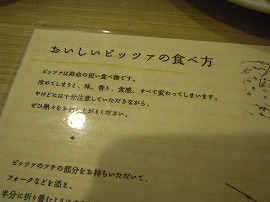 おいしいピッツァの食べ方
ピッツァは寿命の短い食べ物です。
冷めてしまうと、味、香り、食感、すべて変わってしまいます。
やけどには十分注意していただきながら、
ぜひ熱々をお召し上がりください。
ピッツァのフチの部分をお持ちいただいて、
フォークなどを添え、
半分に折り畳むように